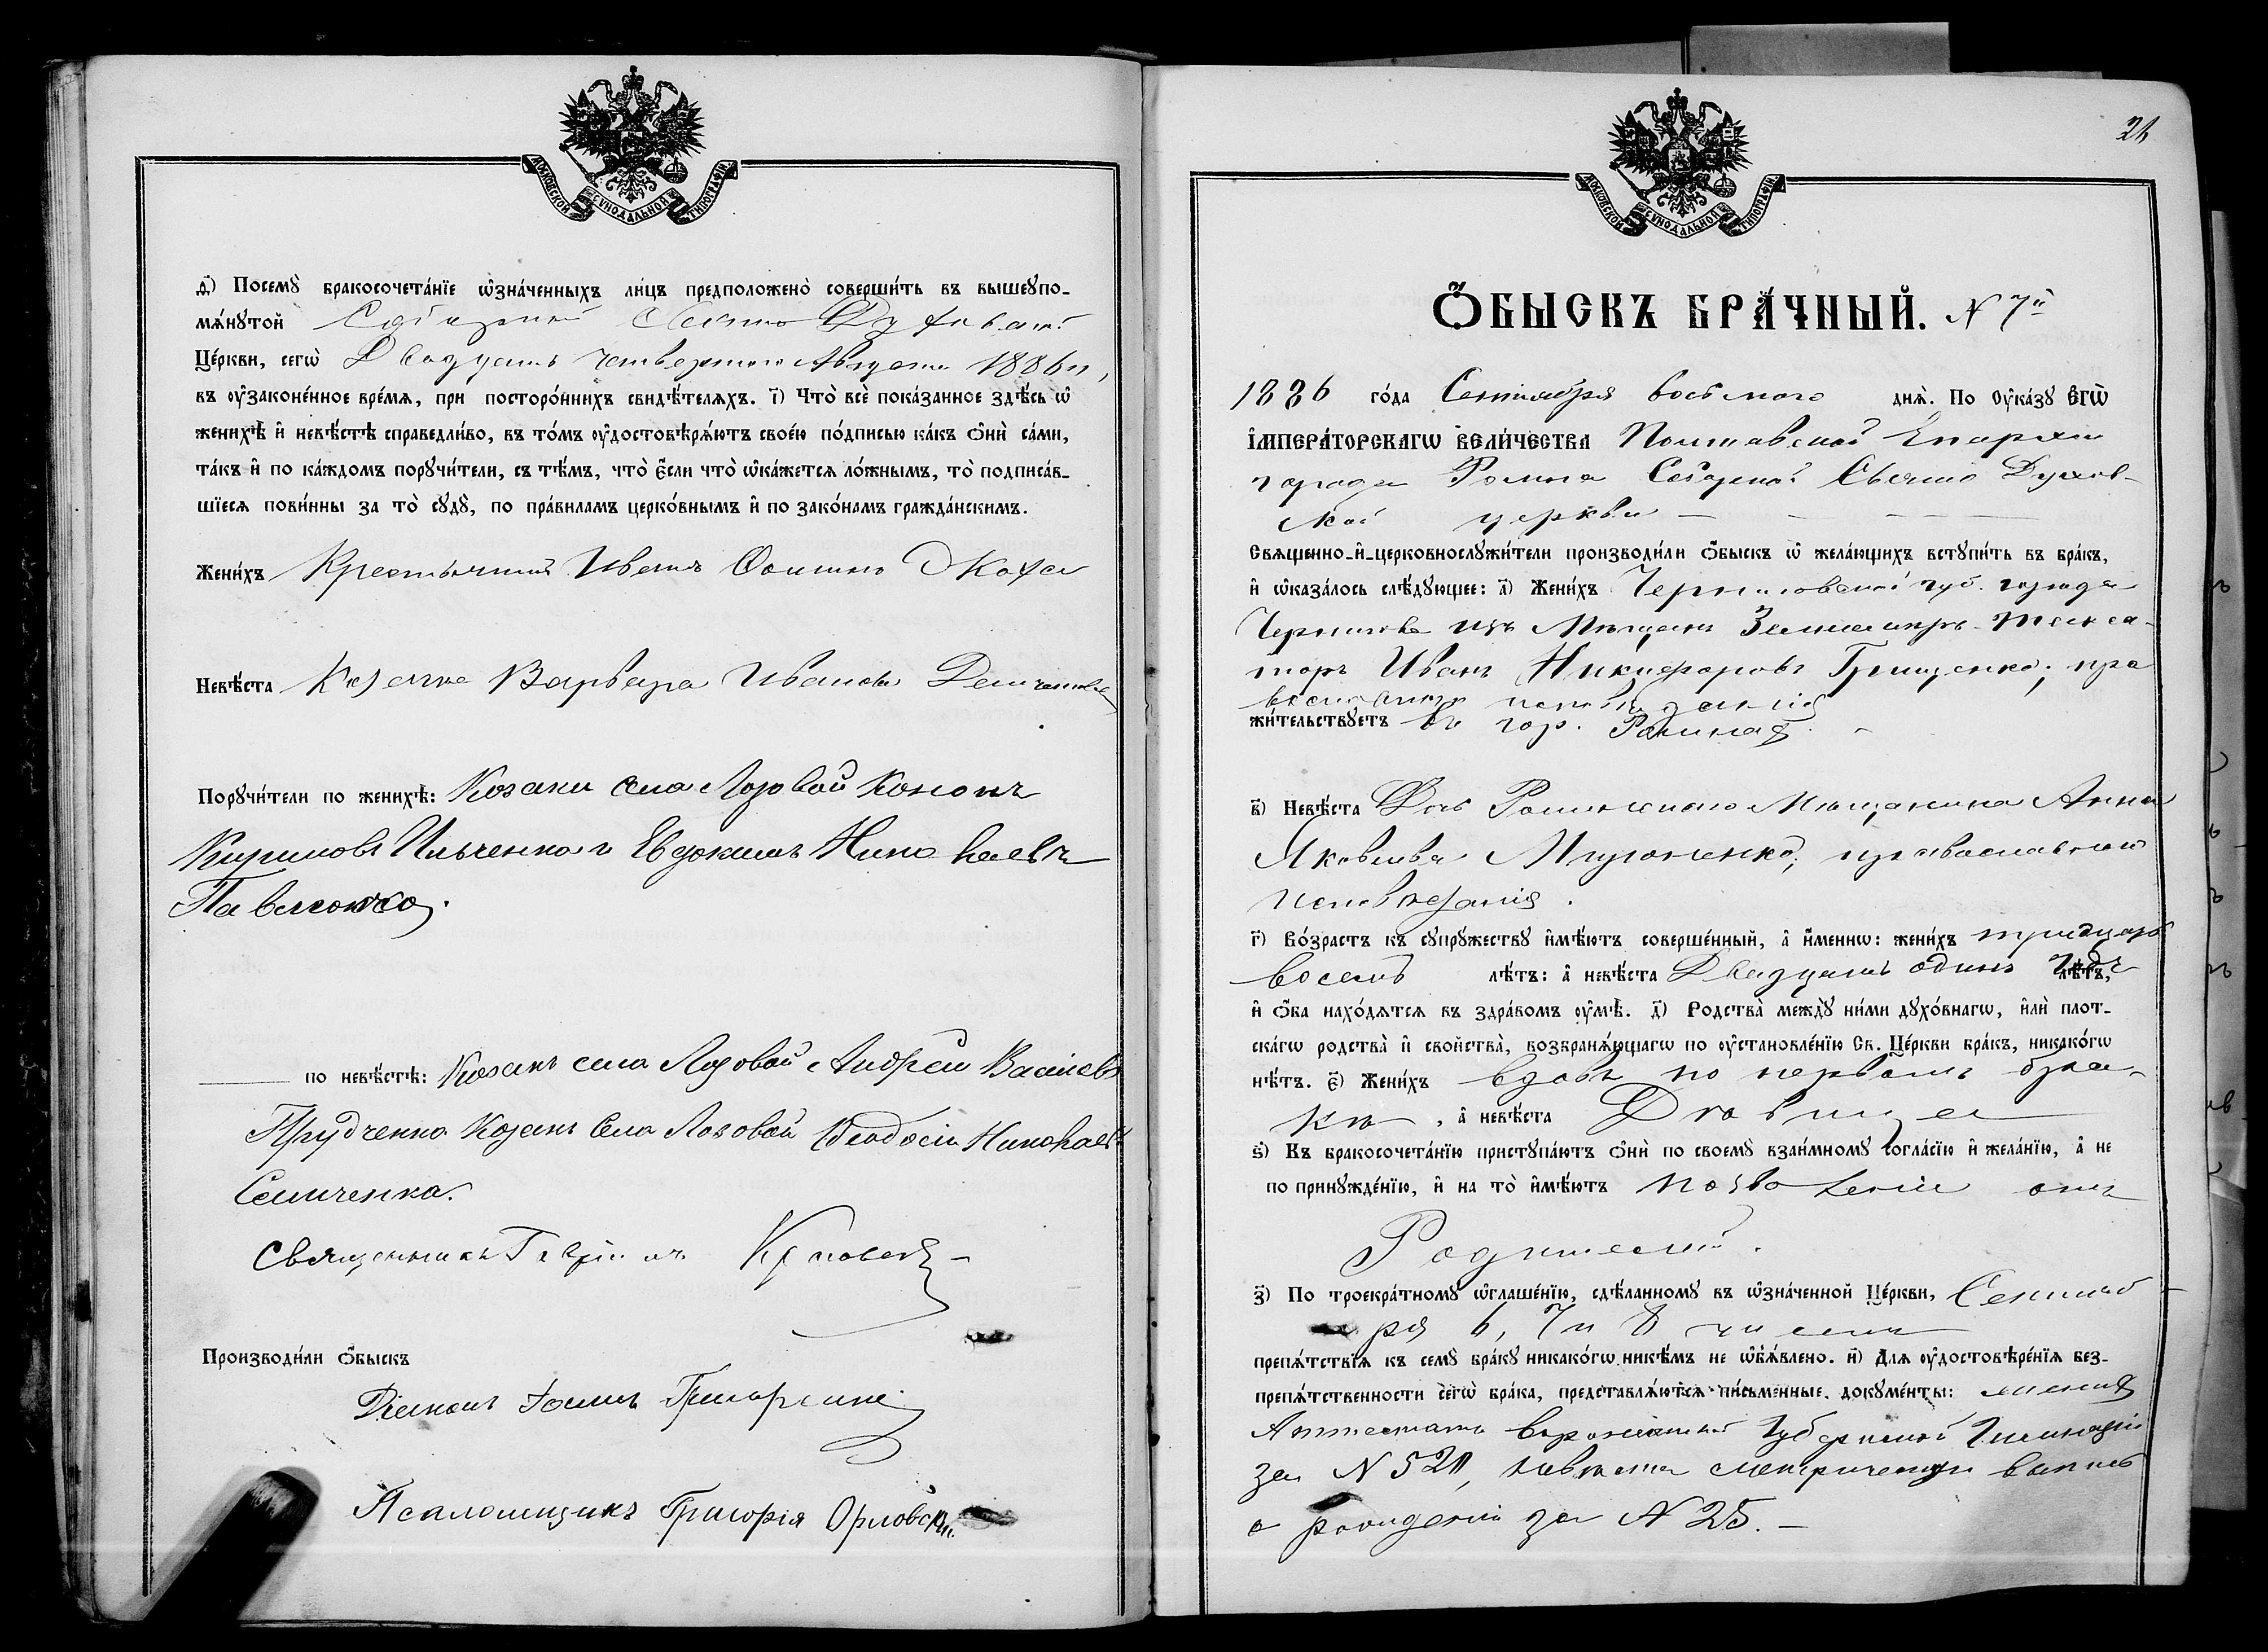 МОСКОВСКОЙ СѴНОДАЛЬНОЙ ТИПОГРАФІИ
д҃) Посемꙋ̀ бракосочета́нїе ѡ҆зна́ченныхъ ли́цъ предположено̀ соверши́ть въ вышеꙋпо-
мѧ́нꙋтой Соборной Свято Духовской
Це́ркви, сегѡ̀ Двадцать четвертого Августа 1886 г,
въ ᲂу҆законе́нное вре́мѧ, при посторо́ннихъ свидѣ́телѧхъ. і҃) Что̀ всѐ пока́занное здѣ́сь ѡ҆
женихѣ̀ и҆ невѣ́стѣ справедли́во, въ то́мъ ᲂу҆достовѣрѧ́ютъ свое́ю по́дписью ка́къ ѻ҆нѝ са́ми,
та́къ и҆ по ка́ждомъ порꙋчи́тели, съ тѣ́мъ, что̀ є҆́сли что̀ ѡ҆ка́жетсѧ ло́жнымъ, то̀ подписа́в-
шїесѧ пови́нны за то̀ сꙋдꙋ̀, по пра́виламъ церко́внымъ и҆ по зако́намъ гражда́нскимъ.
Жени́хъ Крестьянинъ Иванъ
Невѣ́ста Козачка Варвара Иванова
Порꙋчи́тели по женихѣ̀: Козаки села Лозовой Кононъ
Кириловъ Ильченко и Евдокимъ Николаевъ
Павленко.
по невѣ́стѣ: Козакъ села Лозовой Андрей Васильевъ
Прудченко Козакъ села Лозовой Феодосій Николаевъ
Семченко.
Священникъ Гавріилъ
Производи́ли ѻ҆́быскъ
Діаконъ Іоаннъ Григоренко
Псаломщикъ Григорія Орловскій
МОСКОВСКОЙ СѴНОДАЛЬНОЙ ТИПОГРАФІИ
ѺБЫСКЪ БРАЧНЫЙ. N 7й
1886 го́да Сентября восьмого днѧ̀. По Оу҆ка́зꙋ Є҆ГѠ̀
І҆МПЕРА́ТОРСКАГѠ ВЕЛИ́ЧЕСТВА Полтавской Епархіи
города Ромна Соборной Свято Духов-
ской церкви
Свѧщенно-и҆-церковнослꙋжи́тели производи́ли ѻ҆́быскъ ѡ҆ жела́ющихъ встꙋпи́ть въ бра́къ,
и҆ ѡ҆каза́лось слѣ́дꙋющее: а҃) Жени́хъ Черниговской губ. города
Чернигова изъ Мѣщанъ Землемѣръ-Такса-
торъ Иванъ Никифоровъ Грищенко; пра
вославнаго исповѣданія
жи́тельствꙋетъ въ гор. Ромнахъ.
в҃) Невѣ́ста Дочь Роменского Мѣщанина Анна
Яковлева Мироненко, православного
исповѣданія.
г҃) Во́зрастъ къ сꙋпрꙋ́жествꙋ и҆мѣ́ютъ соверше́нный, а҆ и҆́меннѡ: жени́хъ тридцать
восемь лѣ́тъ: а҆ невѣ́ста Двадцать одинъ годъ лѣ́тъ,
и҆ ѻ҆́ба нахо́дѧтсѧ въ здра́вомъ ᲂу҆мѣ̀. д҃) Родства̀ междꙋ̀ ни́ми дꙋхо́внагѡ, и҆лѝ плот-
ска́гѡ родства̀ и҆ свойства̀, возбранѧ́ющагѡ по ᲂу҆становле́нїю Св. Це́ркви бра́къ, никако́гѡ
нѣ́тъ. є҃) Жени́хъ вдовъ по первомъ бра-
кѣ, а҆ невѣ́ста Дѣвица
ѕ҃) Къ бракосочета́нїю пристꙋпа́ютъ ѻ҆нѝ по своемꙋ̀ взаи́мномꙋ согла́сїю и҆ жела́нїю, а҆ не
по принꙋжде́нїю, и҆ на то̀ и҆мѣ́ютъ позволеніе отъ
Родителей.
з҃) По троекра́тномꙋ ѡ҆глаше́нїю, сдѣ́ланномꙋ въ ѡ҆зна́ченной Це́ркви, Сентяб-
ря 6, 7 и 8 числъ
препѧ́тствїѧ къ семꙋ̀ бра́кꙋ никако́гѡ никѣ́мъ не ѡ҆б̾ѧ́влено. и҃) Длѧ ᲂу҆достовѣре́нїѧ без-
препѧ́тственности сегѡ̀ бра́ка, представлѧ́ютсѧ пи́сьменные докꙋме́нты: жениха
Аттестатъ Губернской Гимназіи
за N 521, невѣста метрическую выпись
о рожденіи за N 25.